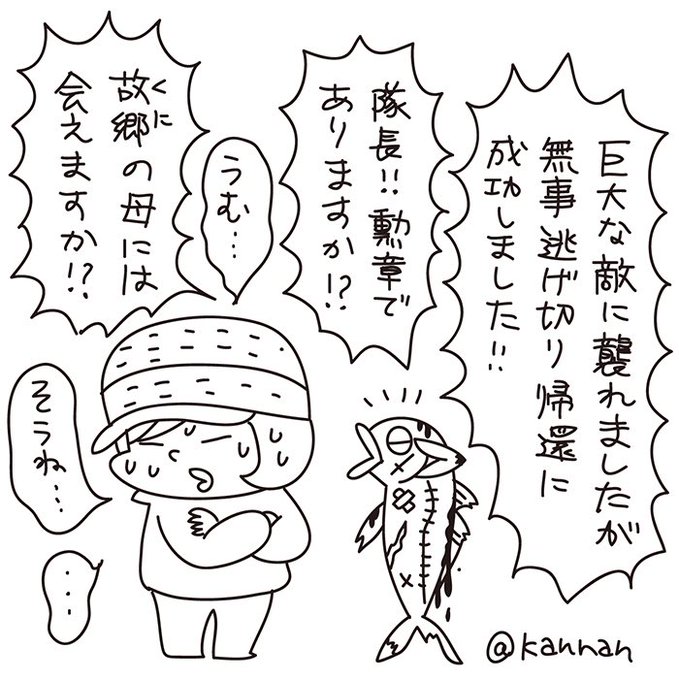 巨大な敵に襲れましたが
無事逃げ切り帰還に
成功しました!!
隊長!!勲章で
ありますか!?
うむ…
故郷の母には
くに
会えますか!?
そうね…
…
@kannan